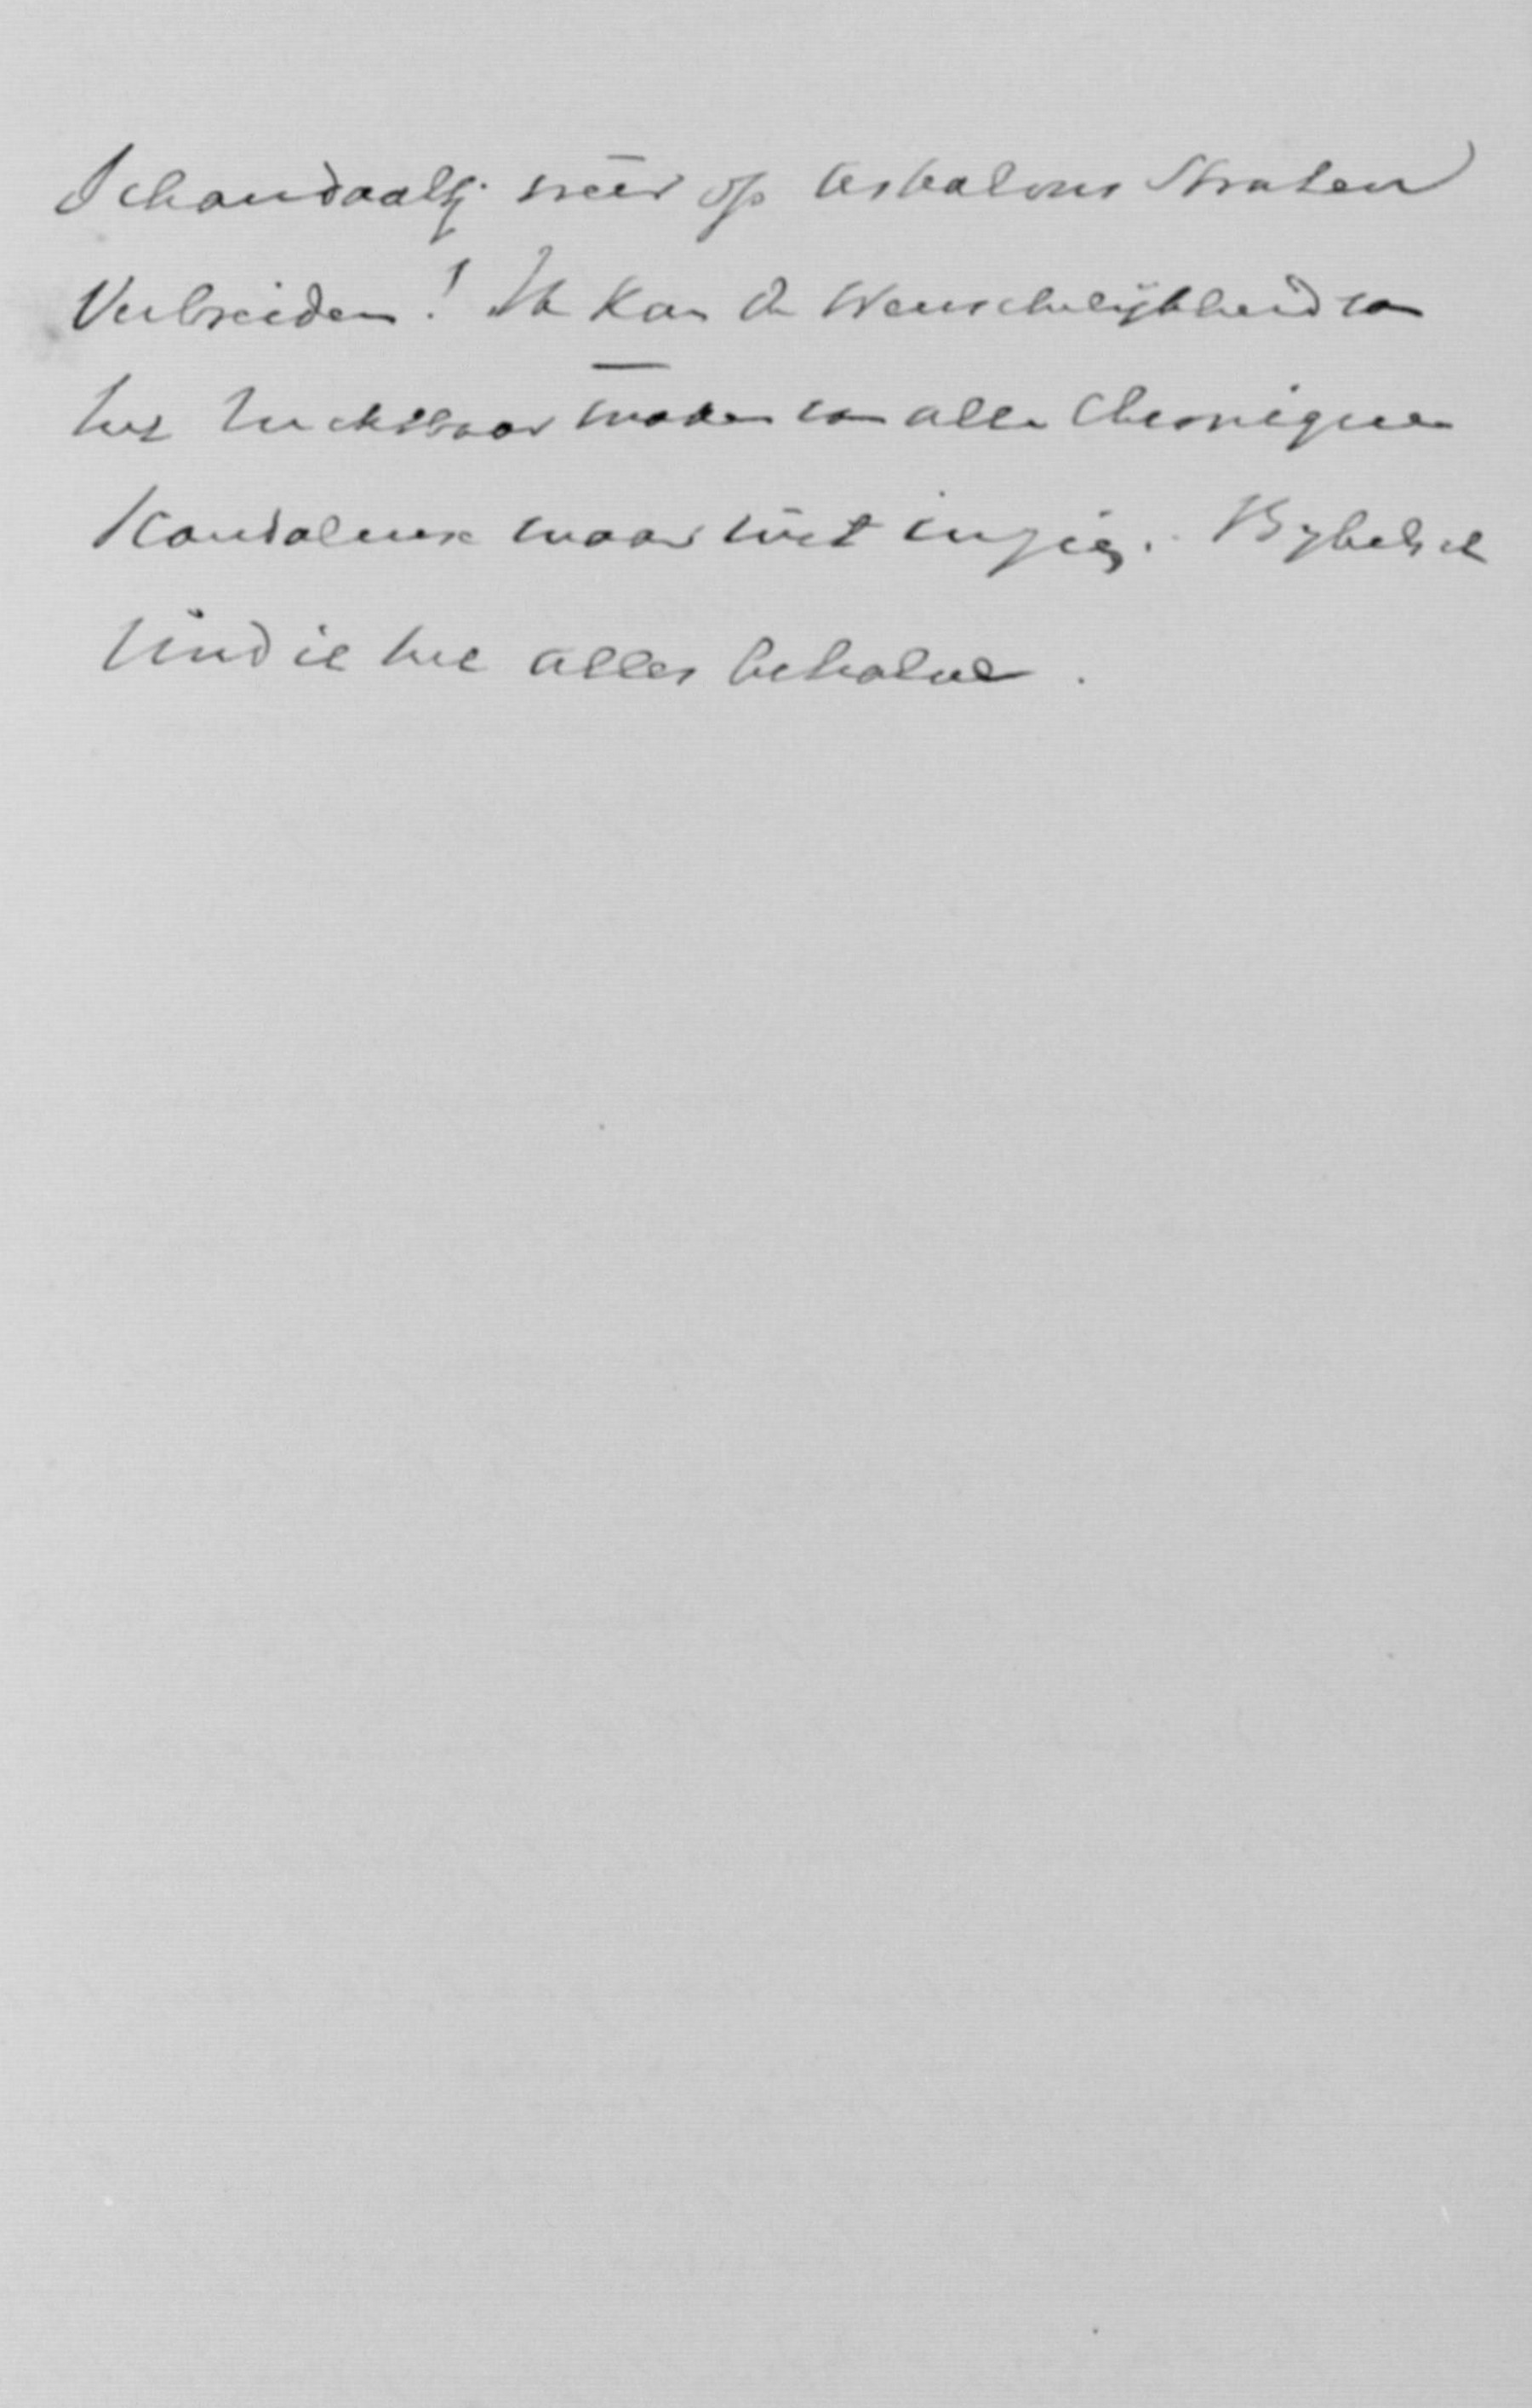 Schandaaltj. méér op Askalons Straten
Verbreiden! Ik kan de Wenschelijkheid van
het ruchtbaar maken van alle Chronique
Scandaleuse maar niet inzien. Bijbelsch
vind ik het alles behalve.